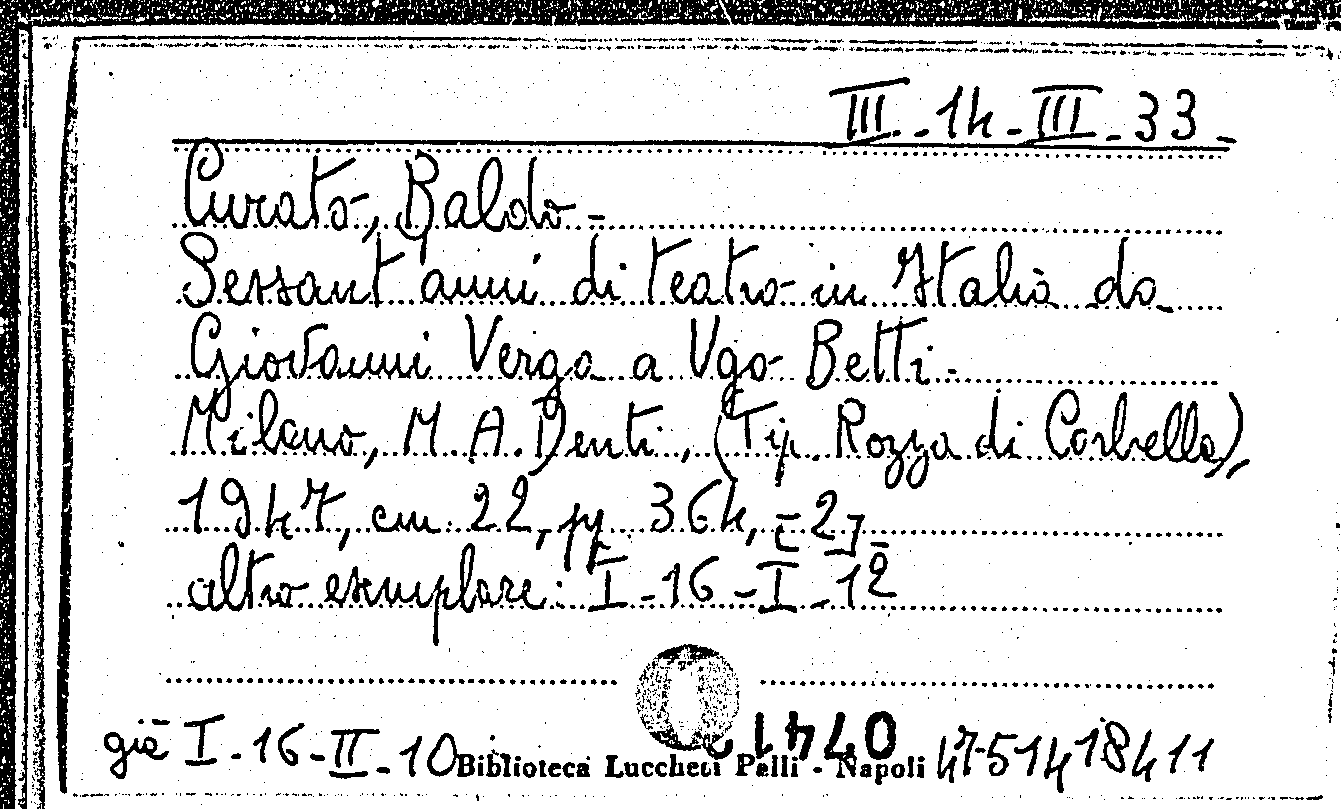 III-14-III-33-
Curato, Baldo-
Sessant'anni di teatro in Italia da
Giovanni Verga a Ugo Betti-
Milano, M.A.Denti, (Tip. Rozza di Corbella),
1947, cm 22, pp. 364, [2]-
altro esemplare: I-16-I-12
già I-16-II-10 Biblioteca Lucchesi Palli - Napoli